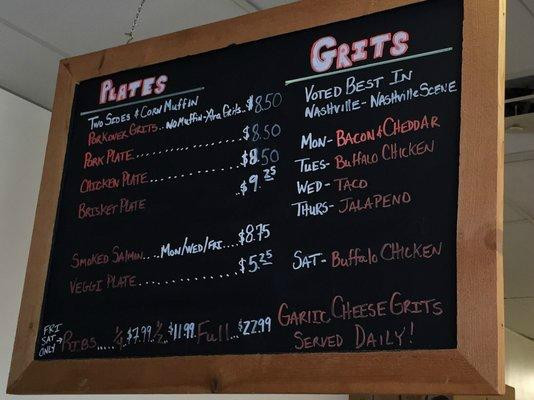 PLATES
TWO SIDES & CORN MUFFIN
PORKOVER GRITS.. NO MUFFIN- Grits $8.50
PORK PLATE ............... $8.50
CHICKEN PLATE ............ $8.50
BRISKET PLATE ..$9.25
SMOKED SALMON... MON/WED/FRI....$8.75
VEGGI PLATE ............. $5.25
FRI
SAT
ONLY
RIBS..... 1/4 $7.99.. 1/2.. $11.99 Full... $22.99
GRITS
VOTED BEST IN
NASHVILLE - NASHVILLE SCENE
MON- BACON & CHEDDAR
TUES- BUFFALO CHICKEN
WED- TACO
THURS- JALAPENO
SAT- BUFFALO CHICKEN
GARLIC CHEESE GRITS
SERVED DAILY!